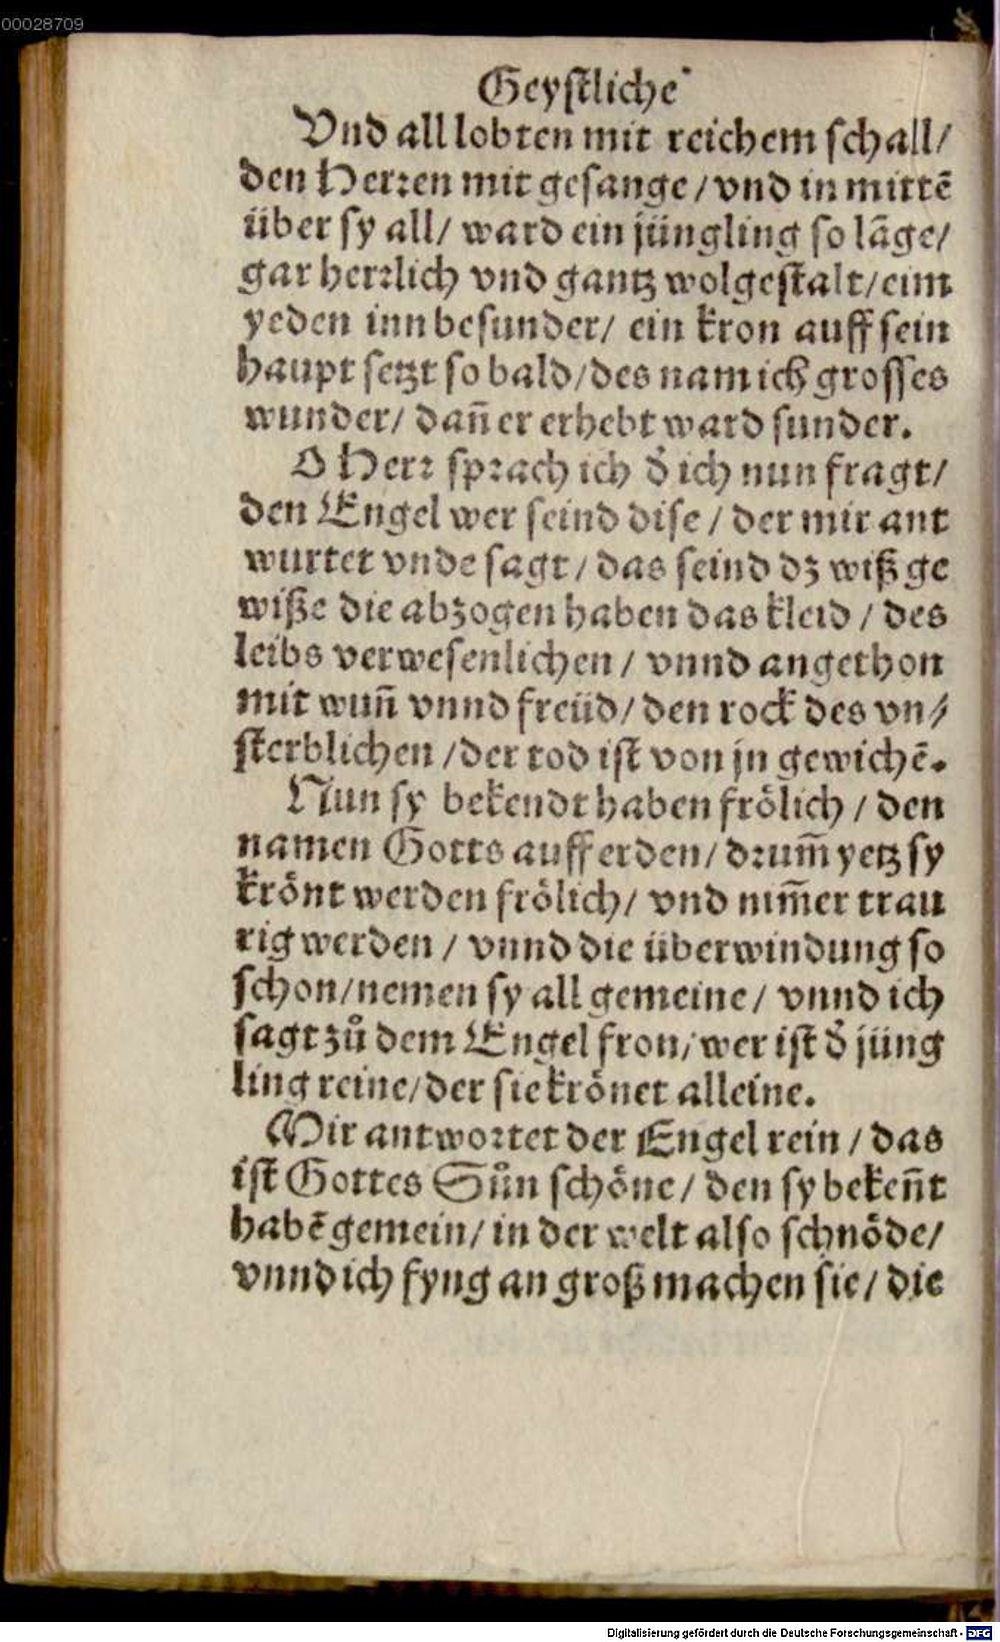 00028709
Geyſtliche
Vnd all lobten mit reichem ſchall/
den Herꝛen mit geſange/vnd in mittē
über ſy all/ ward ein jüngling ſo lāge/
gar herꝛlich vnd gantz wolgeſtalt/eim
yeden inn beſunder/ ein kron auff ſein
haupt ſetzt ſo bald/des nam ich groſſes
wunder/ dañ er erhebt ward ſunder.
O Herꝛ ſpꝛach ich d̕ ich nun fragt/
den Engel wer ſeind diſe / der mir ant
wurtet vnde ſagt/das ſeind dz wiß ge
wiße die abzogen haben das kleid / des
leibs verweſenlichen / vnnd angethon
mit wuñ vnnd freüd/den rock des vn/
ſterblichen /der tod iſt von jn gewichē.
Nun ſy bekendt haben frölich / den
namen Gotts auff erden/dꝛum̄ yetz ſy
krönt werden frölich/ vnd nim̄er trau
rig werden / vnnd die überwindung ſo
ſchon/nemen ſy all gemeine/ vnnd ich
ſagt zů dem Engel fron/wer iſt d̕ jüng
ling reine/der ſie krönet alleine.
Mir antwoꝛtet der Engel rein / das
iſt Gottes Sůn ſchöne/ den ſy bekeñt
habē gemein/ in der welt alſo ſchnöde/
vnnd ich fyng an groß machen ſie/ die
Digitalisierung gefördert durch die Deutsche Forschungsgemeinschaft - DFG